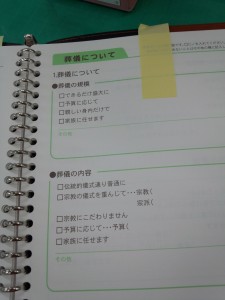 葬儀について
1.葬儀について
●葬儀の規模
□できるだけ盛大に
□予算に応じて
□親しい身内だけで
□家族に任せます
その他
●葬儀の内容
□伝統的儀式通り普通に
□宗教の儀式を重んじて・・・宗教(
宗派(
□宗教にこだわりません
□予算に応じて・・・予算(
□家族に任せます
その他